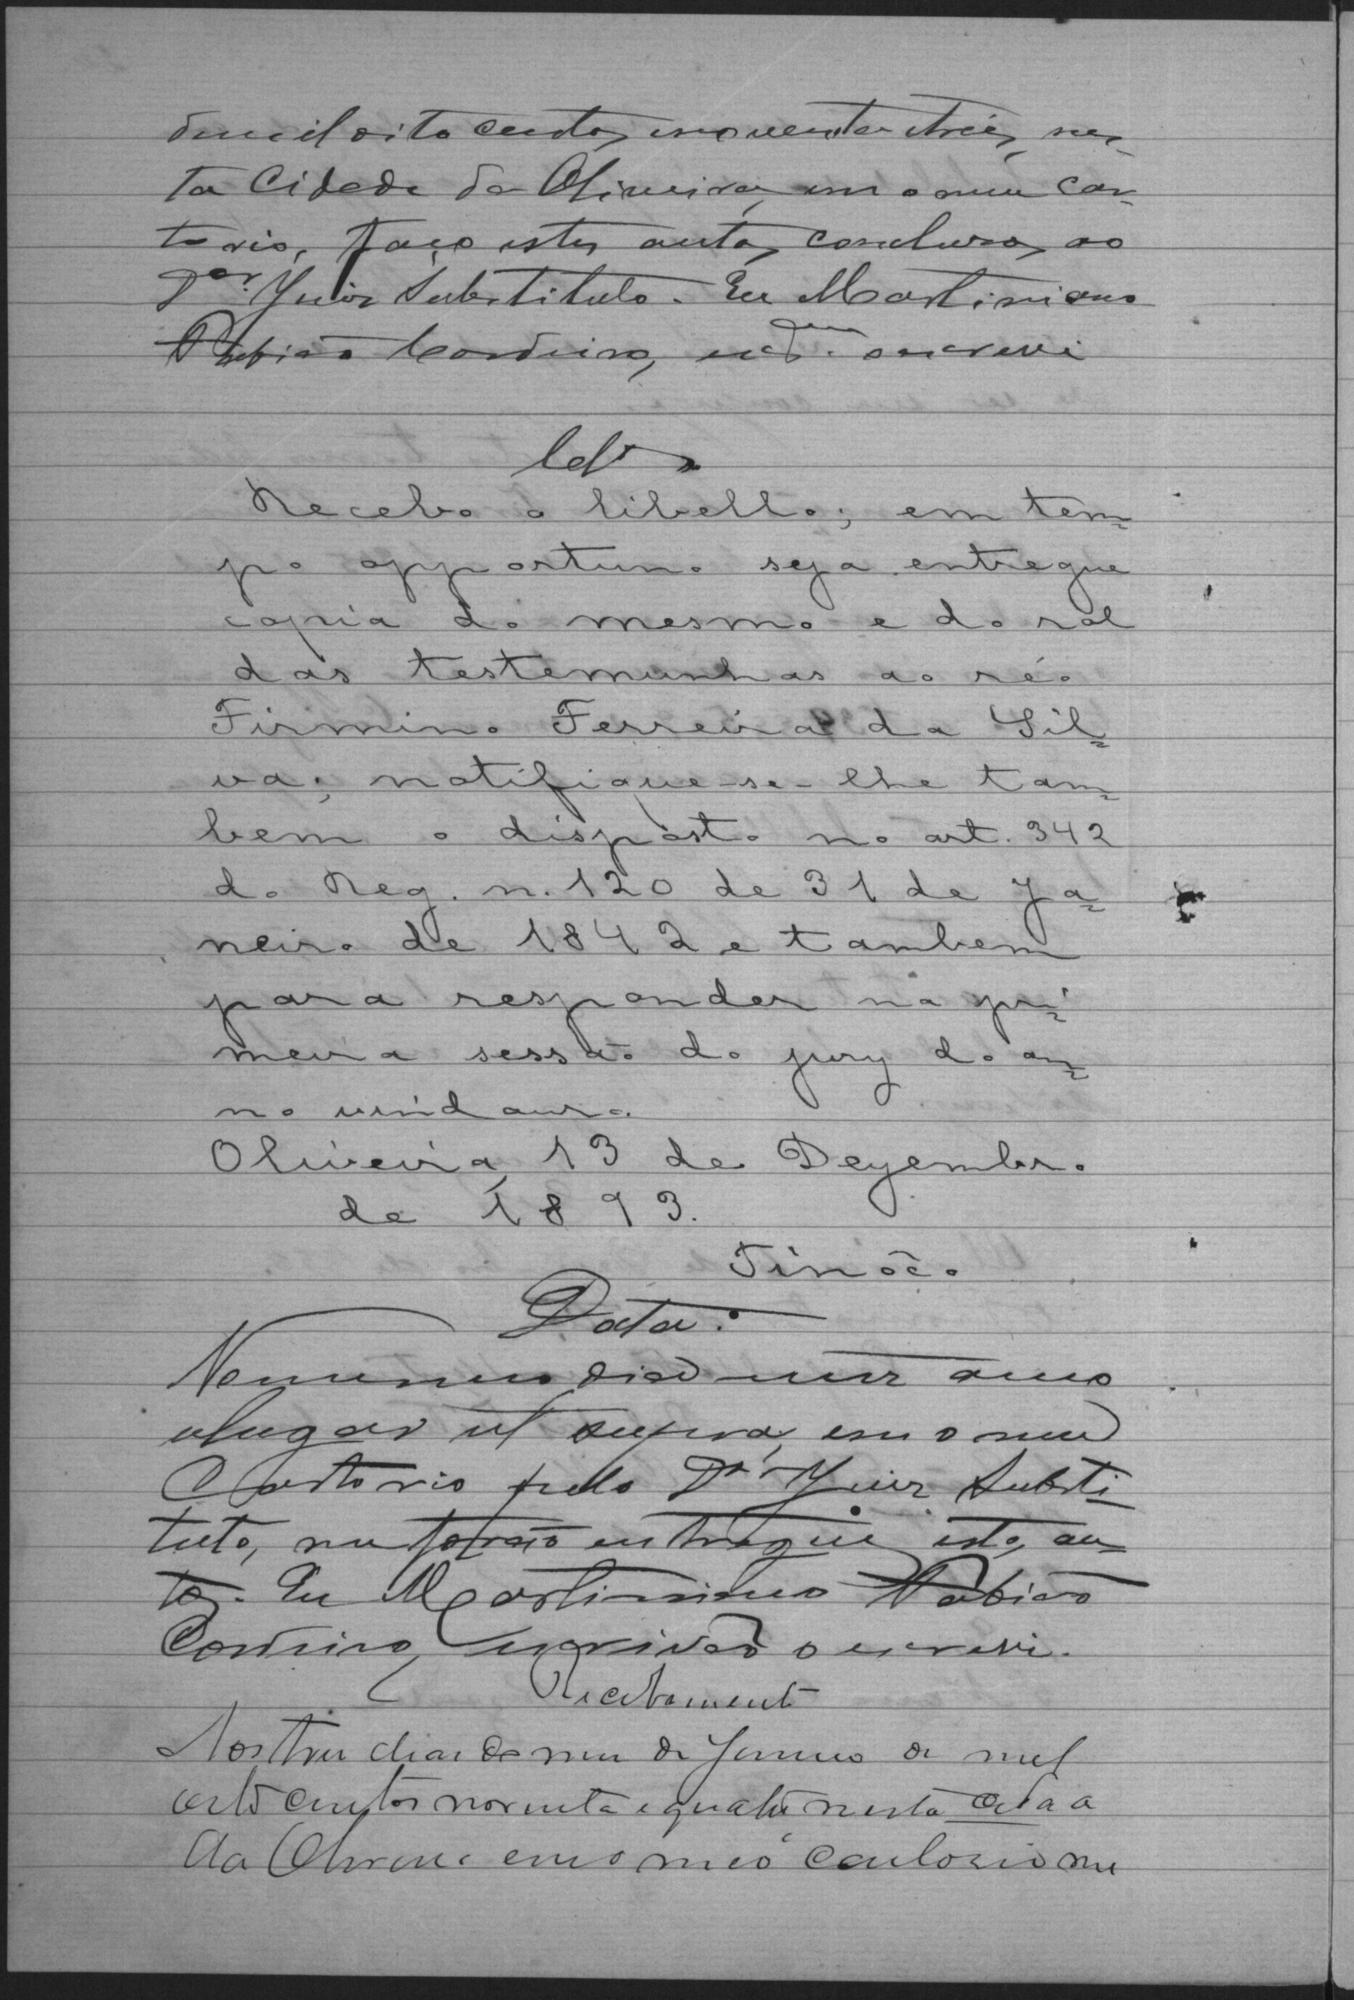 de mil oito centos enoventa etrêz, nes-
ta Cidade de Oliveira, em o meu car-
torio, faço estes autos conclusos ao
Dor. Juiz Substituto. Eu Martiniano
Cordeiro, o escrevi
Clos
Recebo o libello; em tem-
po opportuno seja entregue
copia do mesmo e do rol
das testemunhas ao réo
Firmino Ferreira da Sil-
va; notifique-se-lhe tam-
bem o disposto no art. 342
do Reg. n. 120 de 31 de Ja-
neiro de 1842 e tambem
para responder na pri-
meira sessão do jury do an-
no vindouro.
Oliveira, 13 de Dezembro
de 1893.
Tinôco
Data:
No mesmo dia mez anno
elugar ut supra, em o meu
Cartorio pelo Dr. Juiz Substi-
tuto, me forão entregues estes au-
tos. Eu Martiniano
Cordeiro, escrivão o escrevi.
Recebamento
Aos tres dias do mez de Janeiro de mil
oito centos noventa e quatro nesta cidade
da Oliveira em o meo cartorio me